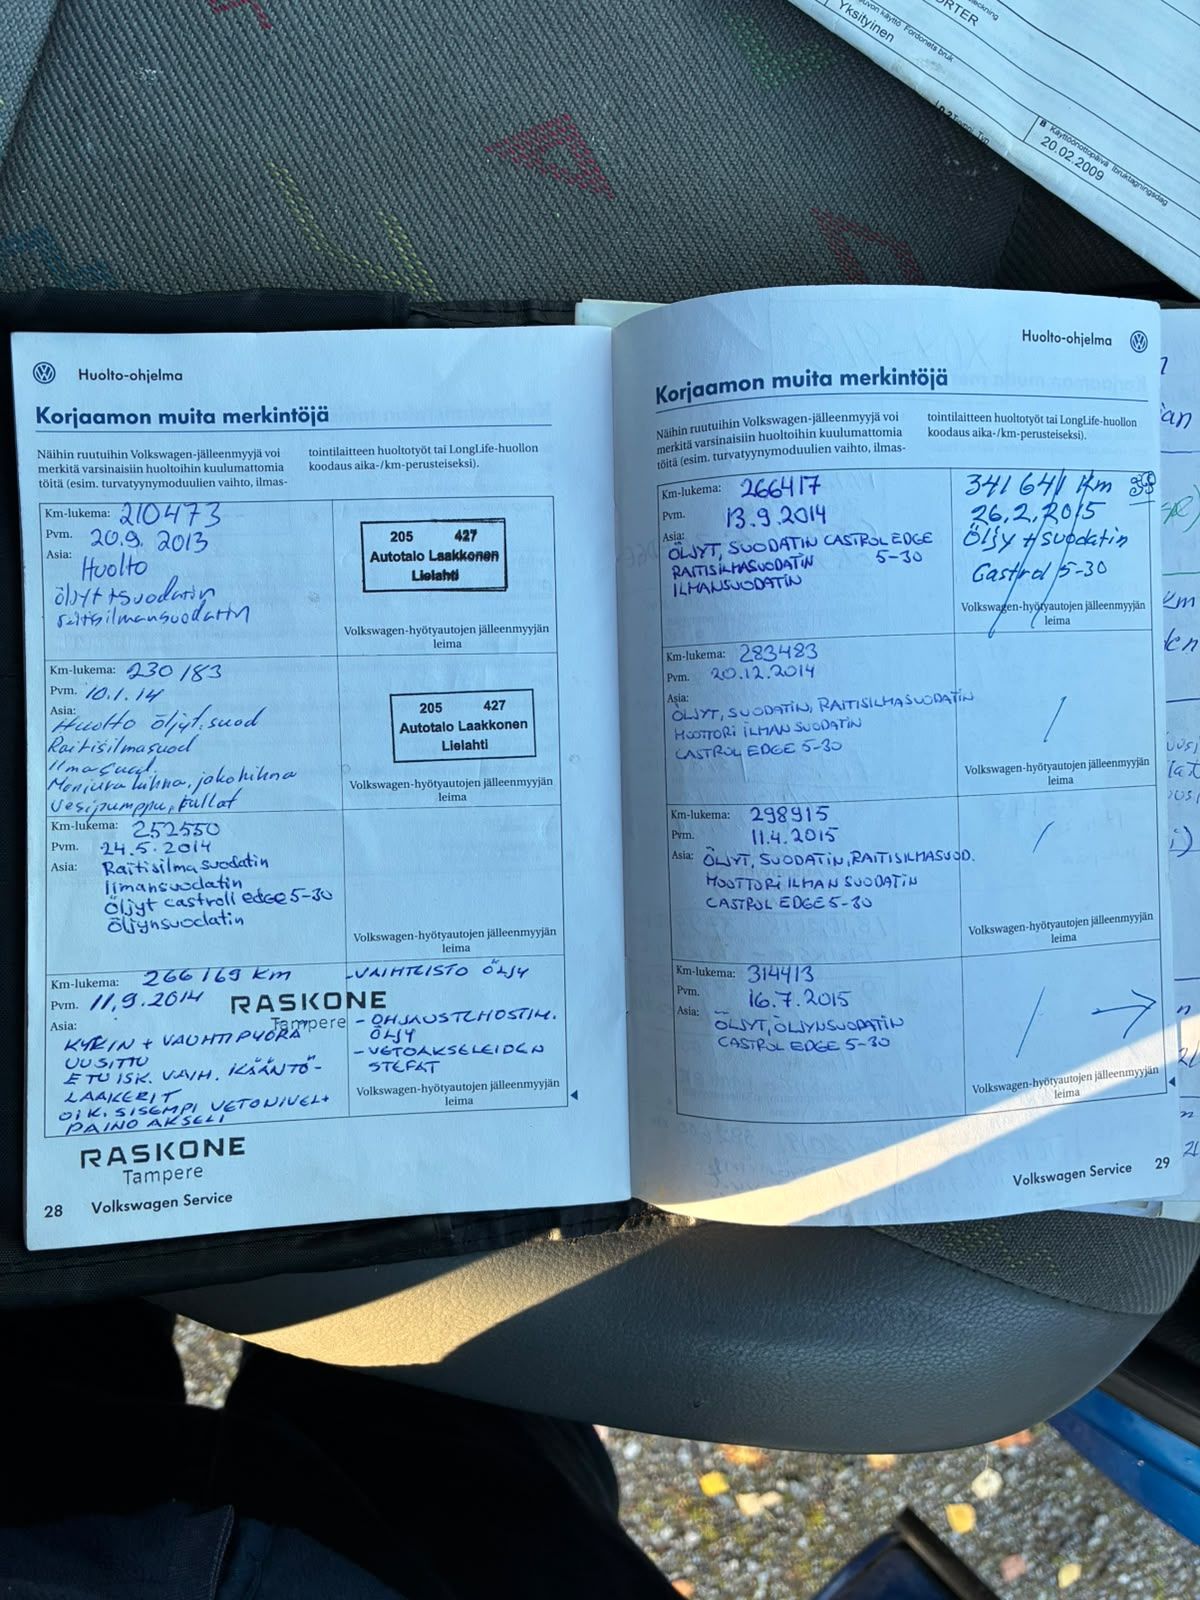 ORTER
Yksityinen
B Käyttöönottopäivä Ibruktagningsdag
20.02.2009
Huolto-ohjelma
Korjaamon muita merkintöjä
Näihin ruutuihin Volkswagen-jälleenmyyjä voi
merkitä varsinaisiin huoltoihin kuulumattomia
töitä (esim. turvatyynymoduulien vaihto, ilmas-
tointilaitteen huoltotyöt tai LongLife-huollon
koodaus aika-/km-perusteiseksi).
Km-lukema: 210473
Pvm. 20.9. 2013
Asia:
Huolto
öljyt + suodatin
raitisilmansuodatin
205 427
Autotalo Laakkonen
Lielahti
Volkswagen-hyötyautojen jälleenmyyjän
leima
Km-lukema: 230183
Pvm. 10.1.14
Asia:
Huolto öljyt.suod
Raitisilmasuod
Ilmasuod.
Moniura hihna, jakohihna
Vesipumppu, rullat
205 427
Autotalo Laakkonen
Lielahti
Volkswagen-hyötyautojen jälleenmyyjän
leima
Km-lukema: 252550
Pvm. 24.5.2014
Asia: Raitisilmasuodatin
Ilmansuodatin
Öljyt castroll edge 5-30
Öljynsuodatin
Volkswagen-hyötyautojen jälleenmyyjän
leima
Km-lukema: 266169 KM
Pvm. 11,9.2014
RASKONE
Tampere
Asia:
KYTKIN + VAUHTIPYÖRÄ
UUSITTU
ETU ISK. VAIH. KÄÄNTÖ-
LAAKERIT
OIK. SISEMPI VETONIVEL+
PAINO AKSELI
-VAIHTEISTO ÖLJY
- OHJAUSTEHOSTIM.
ÖLJY
- VETOAKSELEIDEN
STEFAT
Volkswagen-hyötyautojen jälleenmyyjän
leima
RASKONE
Tampere
28 Volkswagen Service
Huolto-ohjelma
Korjaamon muita merkintöjä
Näihin ruutuihin Volkswagen-jälleenmyyjä voi
merkitä varsinaisiin huoltoihin kuulumattomia
töitä (esim. turvatyynymoduulien vaihto, ilmas-
tointilaitteen huoltotyöt tai LongLife-huollon
koodaus aika-/km-perusteiseksi).
Km-lukema: 266417
Pvm. 13.9.2014
Asia:
ÖLJYT, SUODATIN CASTROL EDGE
5-30
RAITISILMASUODATIN
ILMANSUODATIN
341641 Km
26.2.2015
Öljy + suodatin
Castrol 5-30
Volkswagen-hyötyautojen jälleenmyyjän
leima
Km-lukema: 283483
Pvm. 20.12.2014
Asia:
ÖLJYT, SUODATIN, RAITISILMASUODATIN
MOOTTORI ILMAN SUODATIN
CASTROL EDGE 5-30
Volkswagen-hyötyautojen jälleenmyyjän
leima
Km-lukema: 298915
Pvm. 11.4.2015
Asia: ÖLJYT, SUODATIN, RAITISILMASUOD.
MOOTTORI ILMAN SUODATIN
CASTROL EDGE 5-30
Volkswagen-hyötyautojen jälleenmyyjän
leima
Km-lukema: 314413
Pvm. 16.7.2015
Asia: ÖLJYT, ÖLJYNSUODATIN
CASTROL EDGE 5-30
Volkswagen-hyötyautojen jälleenmyyjän
leima
Volkswagen Service 29